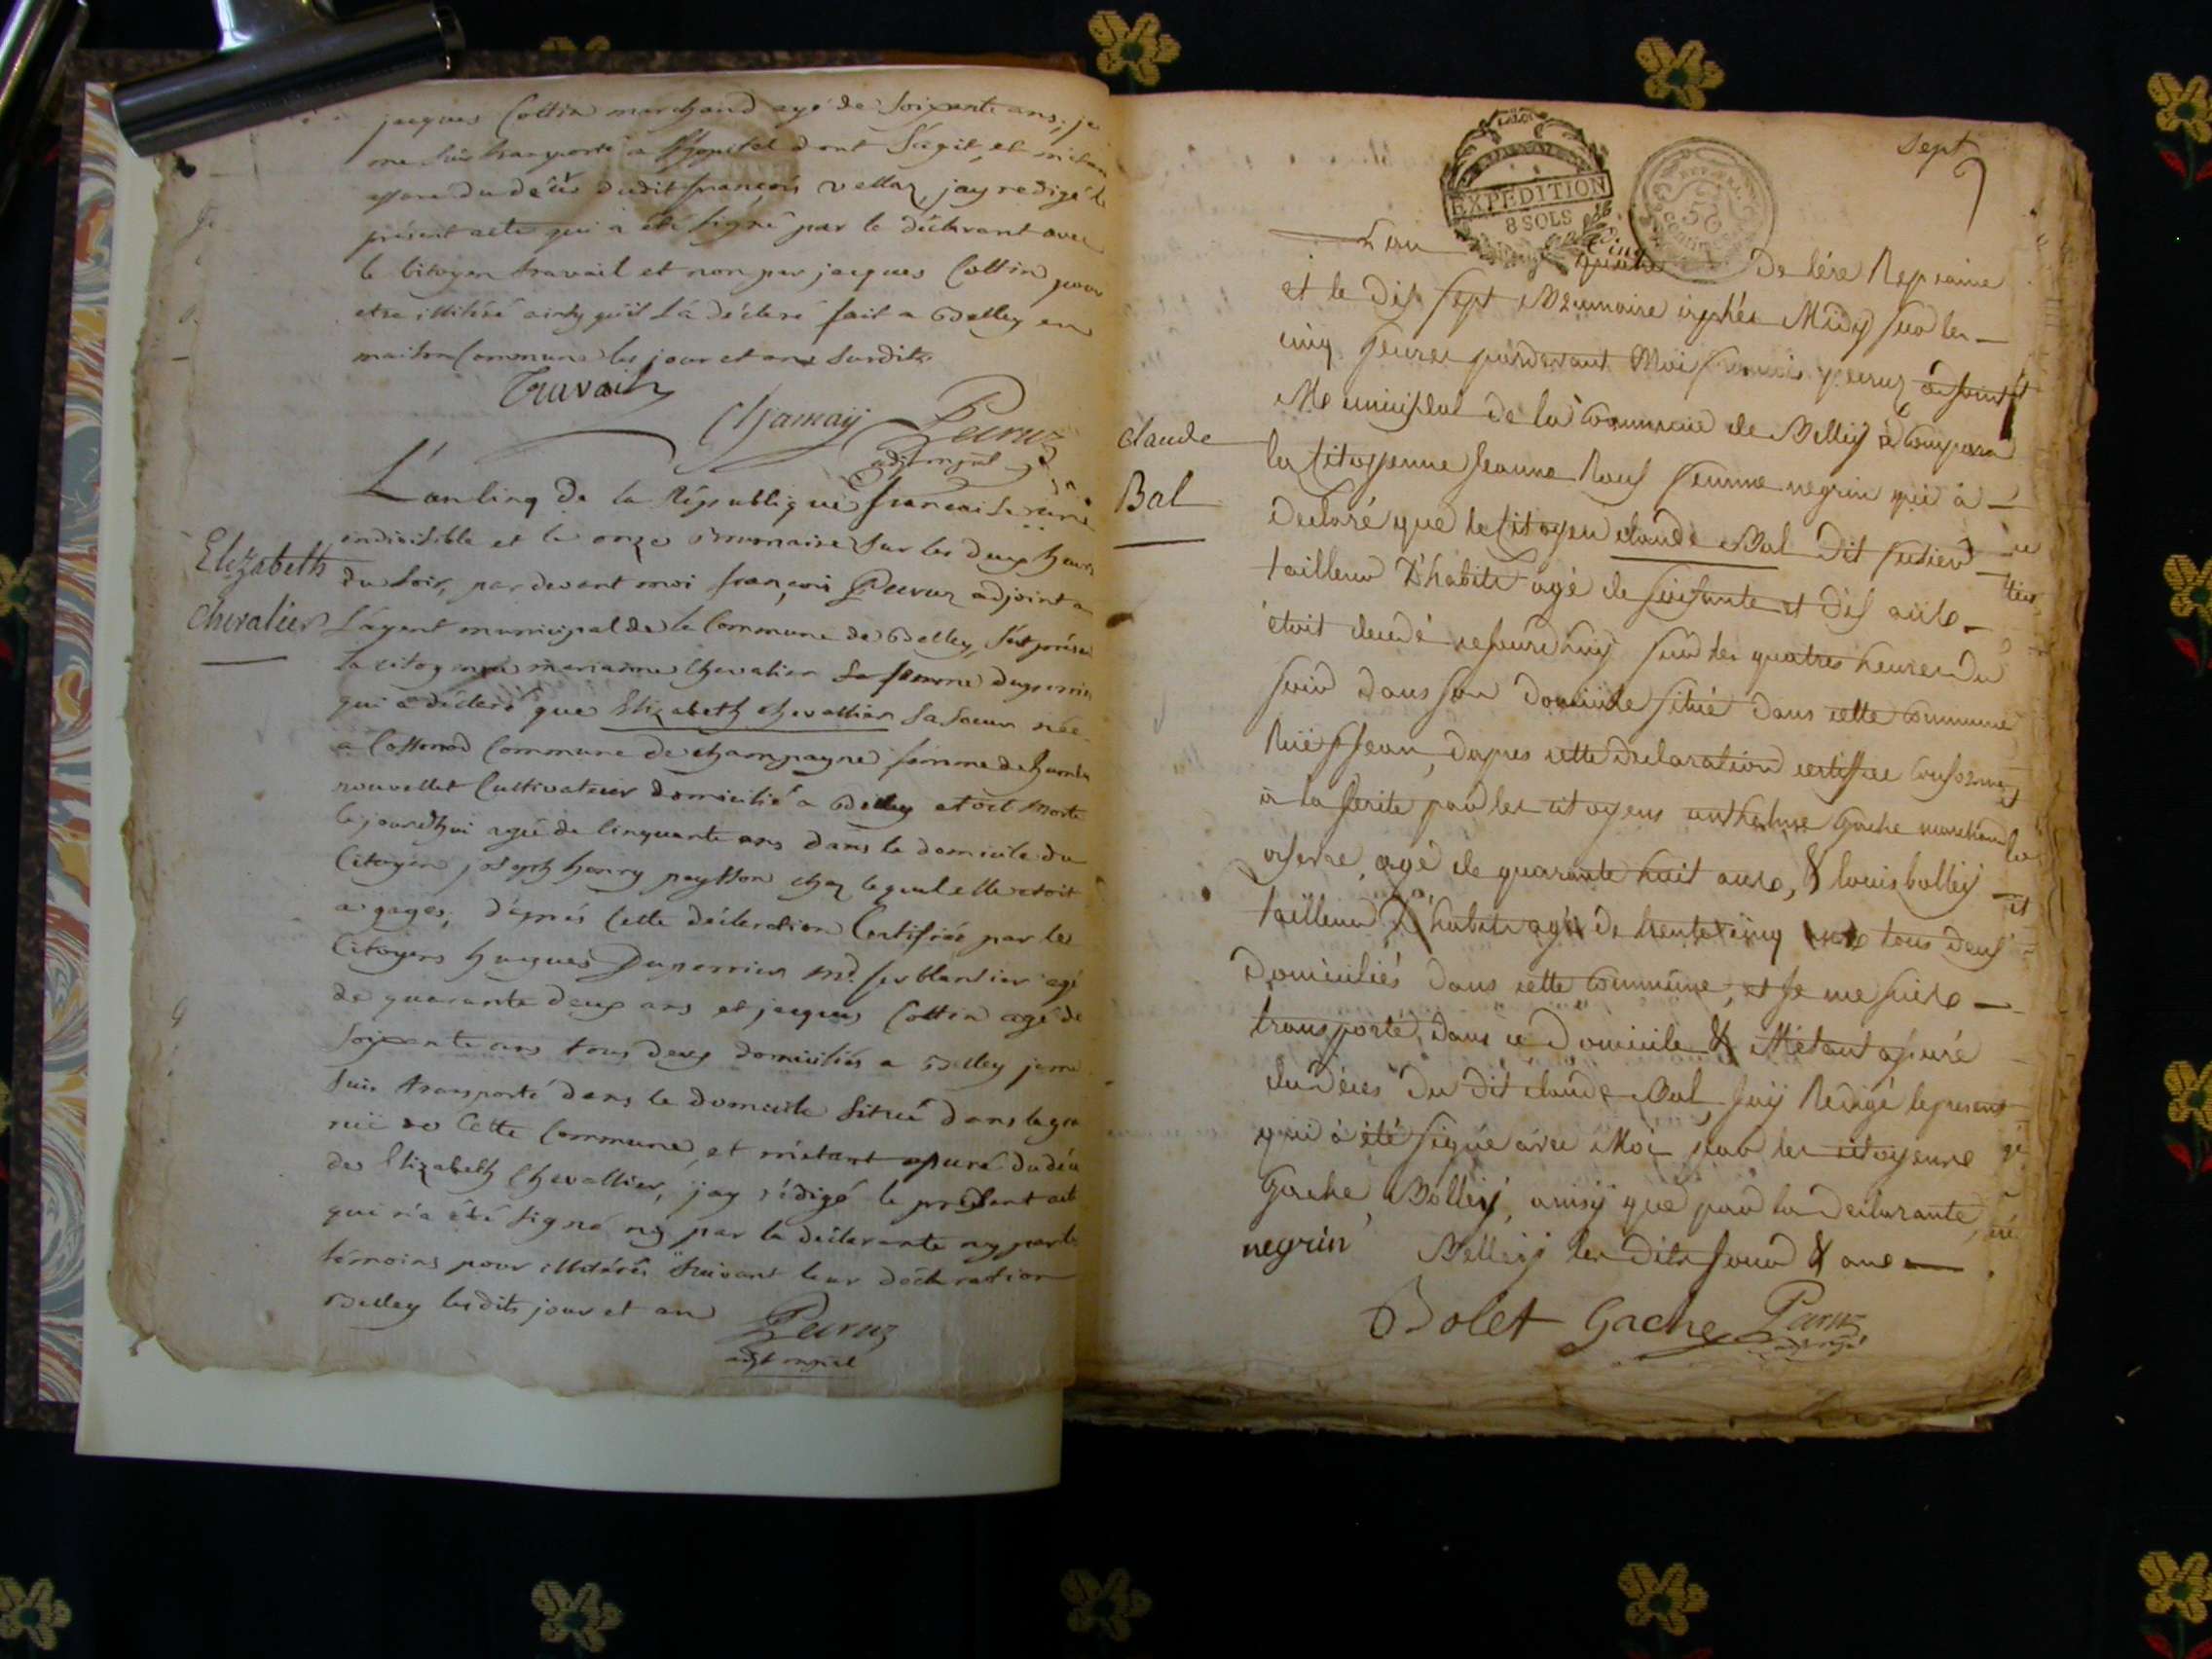 jacques Cottin marchand agé de soixante ans, je
me suis transporté a l'hopital dont s'agit, et m'étant
assuré du décès dudit françois vellaz, jay redigé le
présent acte qui a été signé par le déclarant avec
le Citoyen travail et non par jacques Cottin pour
etre illitéré ainsy qu'il l'a déclaré fait a Belley en
maison Commune les jour et ans susdits
Travail
Chamay Peyruz
adjt mpal
Elizabeth
chevalier
L'an cinq de la République française une
indivisible et le onze Brumaire sur les deux heures
du soir, par devant moi françois Peyruz adjoint a
L'agent municipal de la Commune de Belley, s'est présen
la citoyenne marianne Chevalier femme duperrier
qui a déclaré que Elizabeth chevallier sa soeur née
a Commune de champagne femme de humbe
nouvellet Cultivateur domicilié a Belley etoit morte
cejourdhui agée de cinquante ans dans le domicile du
Citoyen joseph henry chez lequel elle etoit
a gages, d'après cette déclaration Certifiée par les
Citoyens hugues Duperrier md. ferblantier agé
de quarante deux ans et jacques Cottin agé de
soixante ans tous deux domiciliés a Belley je me
suis transporté dans le domicile situé dans la gra
rue de Cette Commune, et m'etant assuré du déc
de Elizabeth Chevallier, jay rédigé le présent acte
qui n'a été signé ny par la déclarante ny par les
témoins pour illitérés suivant leur déclaration
Belley les dits jour et an
Peyruz
adjt mpal
Sept
7
EXPEDITION
8 SOLS
50
L'an Cinq de l'ére Repcaine
et le dix sept Brumaire après Midy sur les
cinq heures pardevant Moi françois peyruz adjoint
Municipal de la Commune de Belley a Comparu
Claude
Bal
la Citoyenne Jeanne Roux femme negrin qui à
declaré que le Citoyen claude Bal dit
tailleur D'habits agé de soixante et dix ans
étoit decedé cejourdhuy sur les quatres heures du
soir dans son domicile situé dans cette commune
Ruë St Jean, dapres cette declaration certiffiée conforme
à la verité par les citoyens anthelme Gache marchand
agé de quarante huit ans, & louis bolley
tailleur D'habits agé de trente cinq ans tous deux
domiciliés dans cette commune, et je me suis
transporté, dans ce domicile & M'étant assuré
du déces du dit claude Bal, Jay Redigé le present
qui à été signé avec Moi par les citoyens
Gache, Bolley, ainsy que par la declarante
negrin Belley les dits jour & an
Bolet Gache Peyruz
adjt mpal